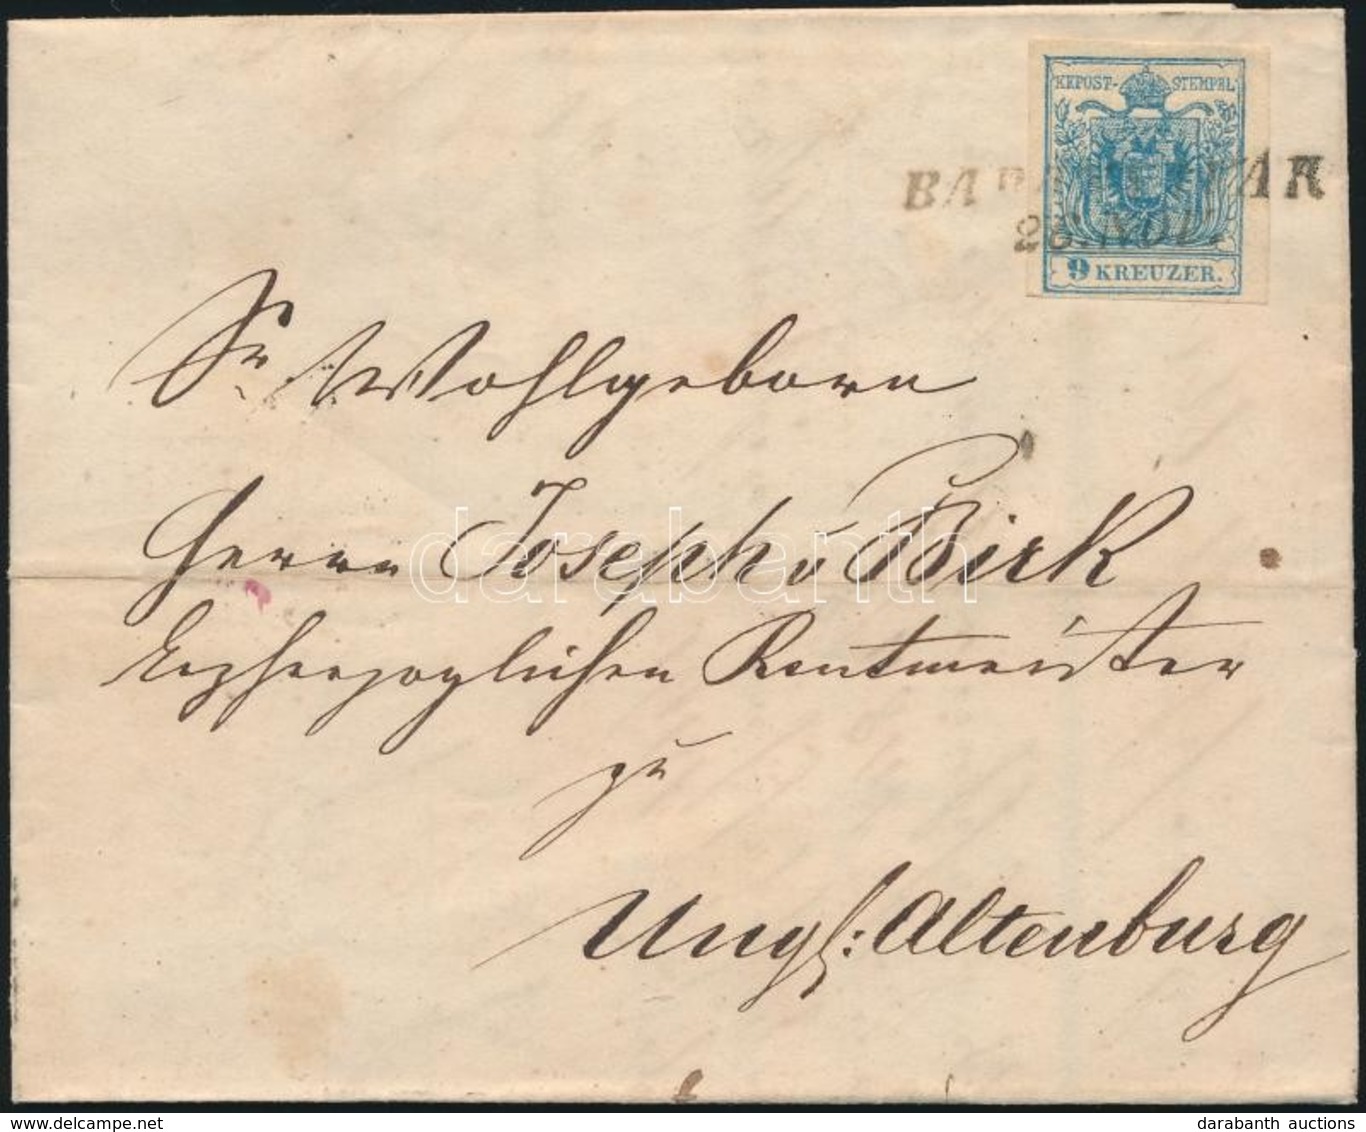 KKPOST-STEMPEL
BARANYAVAR
28. NOV.
9 KREUZER.
Sr Wohlgeborn
Herrn Joseph v Birk
Erzherzoglichen Rentmeister
zu
Ung: Altenburg
darabanth
www.delcampe.net
darabanth auctions